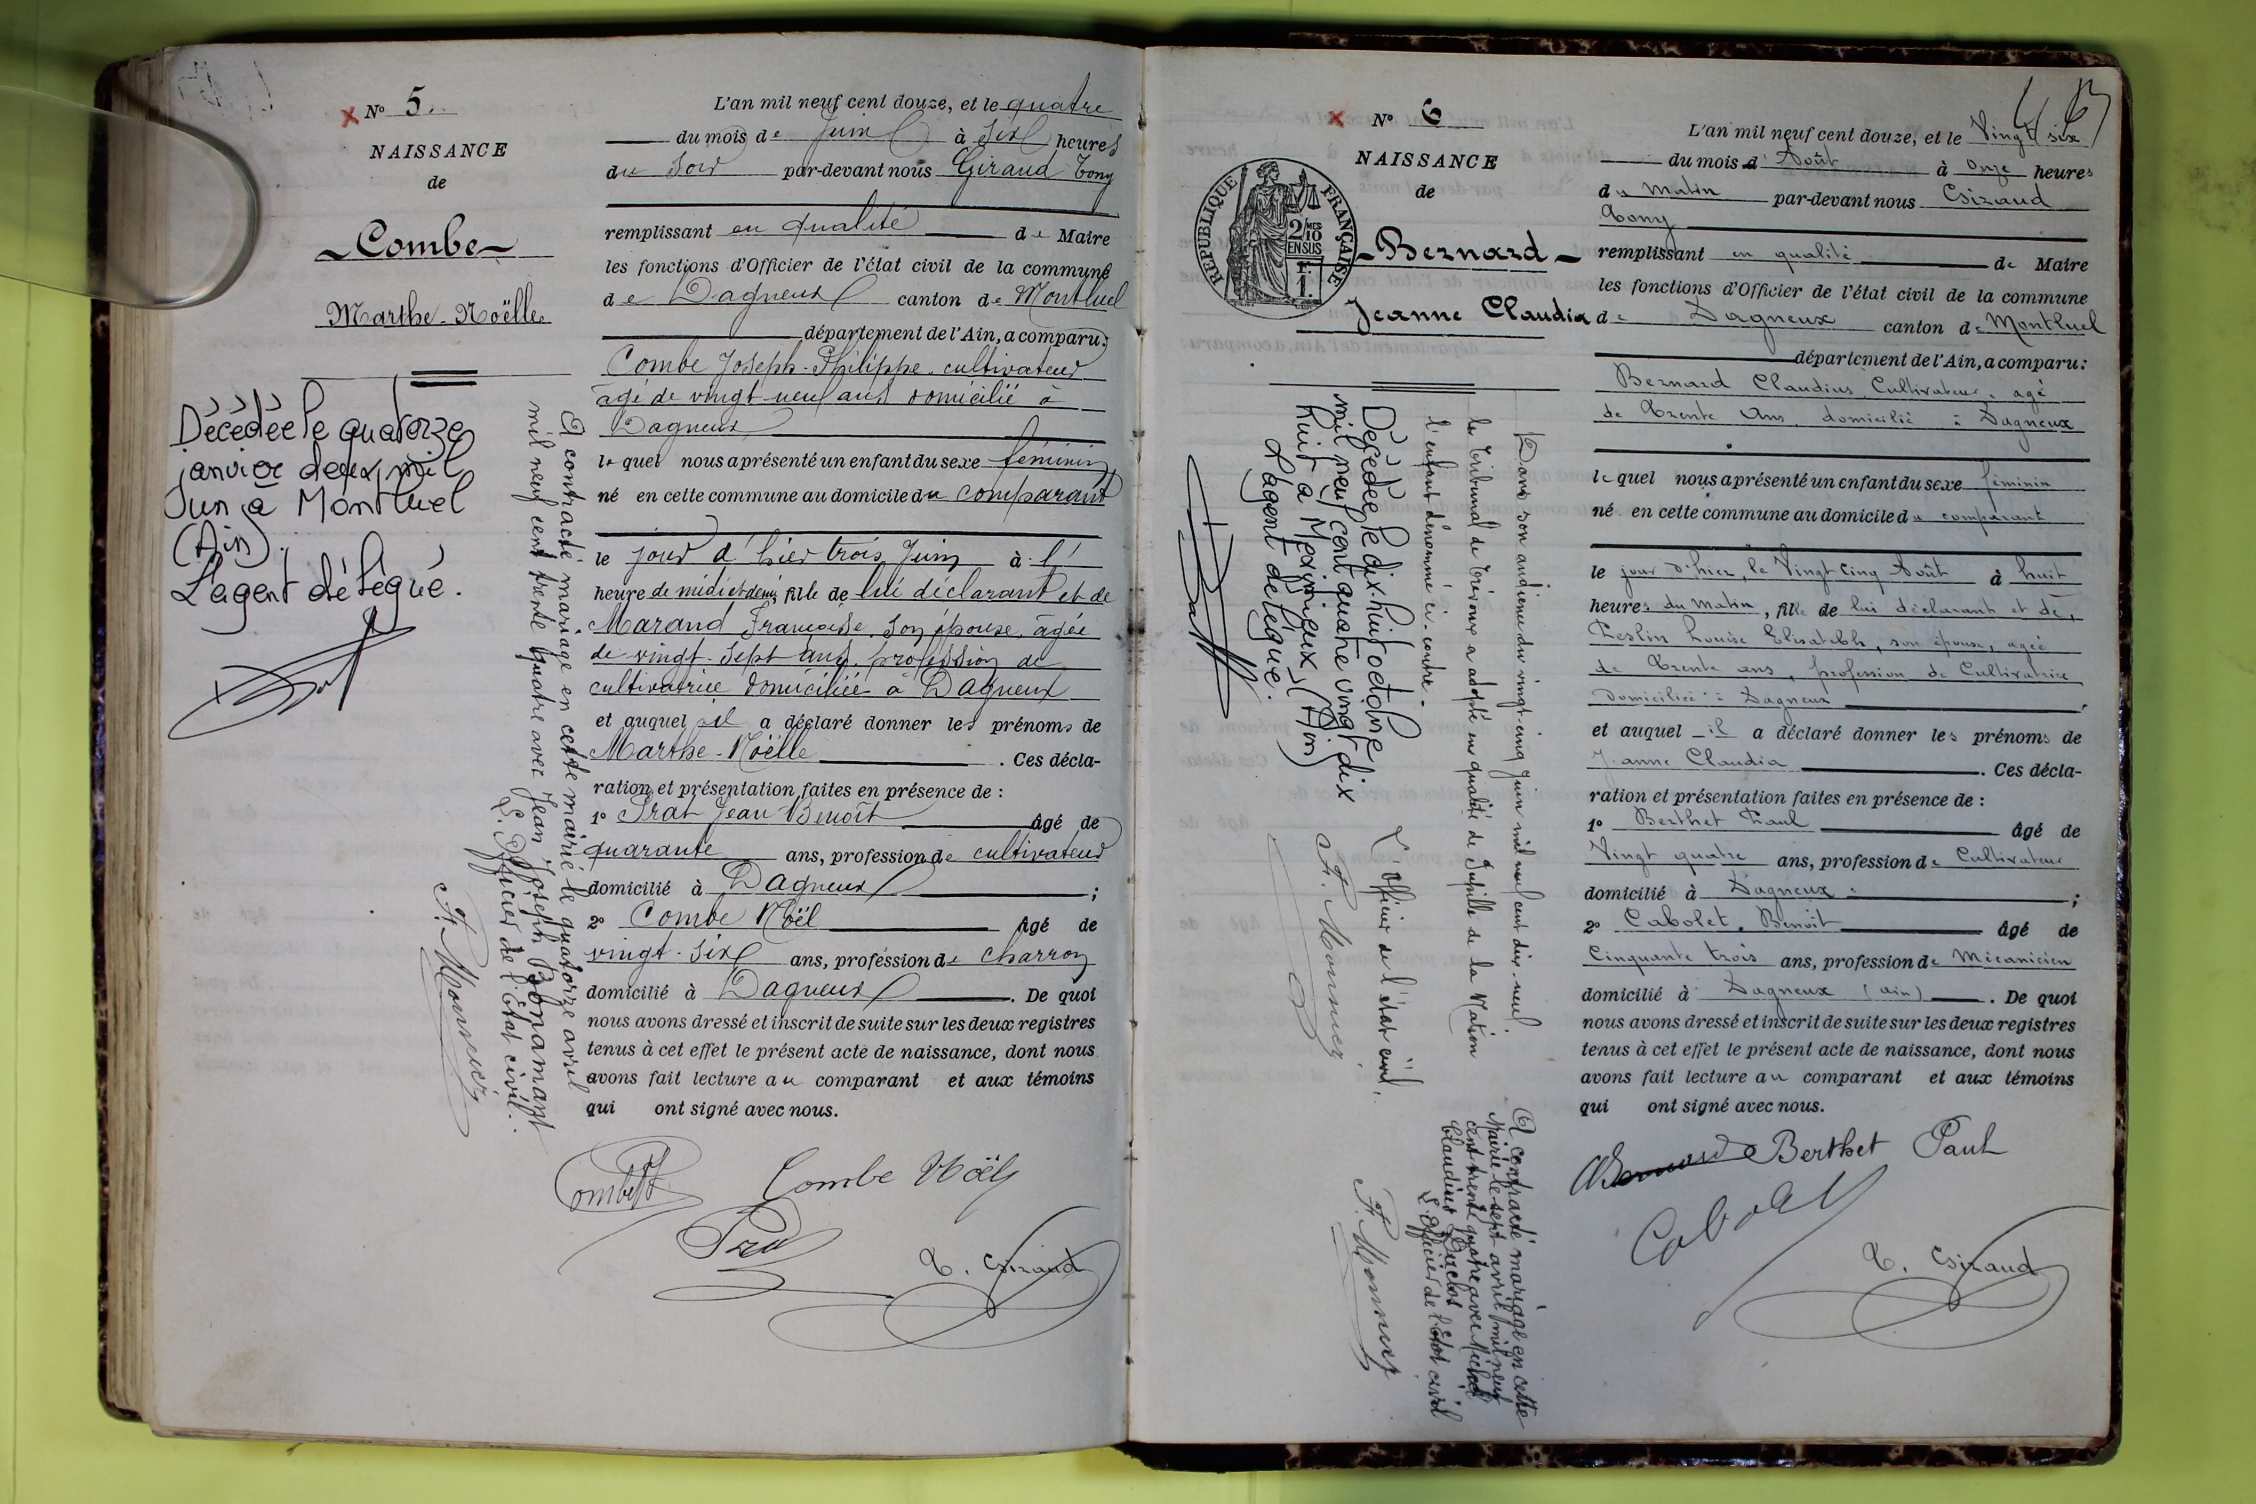 N° 5.
NAISSANCE
de
Combe
Marthe-Noëlle
Décédée le quatorze
janvier deux mil
un à Montluel
(Ain).
L'agent délégué.
A contracté mariage en cette mairie le quatorze avril
mil neuf cent trente quatre avec Jean Joseph Bonamant
L'Officier de l'Etat civil.
L'an mil neuf cent douze, et le quatre
du mois de Juin à six heures
du soir par-devant nous Giraud Tony
remplissant en qualité de Maire
les fonctions d'Officier de l'état civil de la commune
de Dagneux canton de Montluel
département de l'Ain, a comparu:
Combe Joseph-Philippe, cultivateur
âgé de vingt-neuf ans domicilié à
Dagneux
lequel nous a présenté un enfant du sexe féminin,
né en cette commune au domicile du comparant
le jour d'hier trois Juin à l'
heure de midi et demi, fille de lui déclarant et de
Marand Françoise, son épouse, âgée
de vingt-sept ans, profession de
cultivatrice domiciliée à Dagneux
et auquel il a déclaré donner les prénoms de
Marthe-Noëlle. Ces décla-
ration et présentation faites en présence de :
1° Prat Jean Benoît âgé de
quarante ans, profession de cultivateur
domicilié à Dagneux ;
2° Combe Noël âgé de
vingt-six ans, profession de charron
domicilié à Dagneux. De quoi
nous avons dressé et inscrit de suite sur les deux registres
tenus à cet effet le présent acte de naissance, dont nous
avons fait lecture au comparant et aux témoins
qui ont signé avec nous.
Combe
Combe Noël
Prat
T. Giraud
N° 6
NAISSANCE
de
RÉPUBLIQUE FRANÇAISE
2/10 MES
EN SUS
1F.
Bernard
Jeanne Claudia
Dans son audience du vingt-cinq juin mil neuf cent dix-neuf,
le Tribunal de Trévoux a adopté en qualité de Pupille de la Nation
l'enfant dénommé ci-contre.
L'officier de l'état civil,
Décédée le dix-huit octobre
mil neuf cent quatre vingt dix
huit à Meximieux (Ain)
L'agent délégué.
A contracté mariage en cette
Mairie le sept avril mil neuf
cent trente quatre avec Michel
Claudius Duclos
L'Officier de l'Etat civil
L'an mil neuf cent douze, et le Vingt six
du mois d'Août à onze heures
du Matin par-devant nous Giraud
Tony
remplissant en qualité de Maire
les fonctions d'Officier de l'état civil de la commune
de Dagneux canton de Montluel
département de l'Ain, a comparu:
Bernard Claudius, Cultivateur, agé
de Trente Ans, domicilié à Dagneux
lequel nous a présenté un enfant du sexe féminin
né en cette commune au domicile du comparant
le jour d'hier, le Vingt cinq Août à huit
heures du Matin, fille de lui déclarant et de,
Louise Elisabeth, son épouse, agée
de Trente ans, profession de Cultivatrice
domiciliée à Dagneux
et auquel il a déclaré donner les prénoms de
Jeanne Claudia. Ces décla-
ration et présentation faites en présence de :
1° Berthet Paul âgé de
Vingt quatre ans, profession de Cultivateur
domicilié à Dagneux ;
2° Cabolet, Benoit âgé de
Cinquante trois ans, profession de Mécanicien
domicilié à Dagneux (Ain). De quoi
nous avons dressé et inscrit de suite sur les deux registres
tenus à cet effet le présent acte de naissance, dont nous
avons fait lecture au comparant et aux témoins
qui ont signé avec nous.
Bernard Berthet Paul
Cabolet
T. Giraud